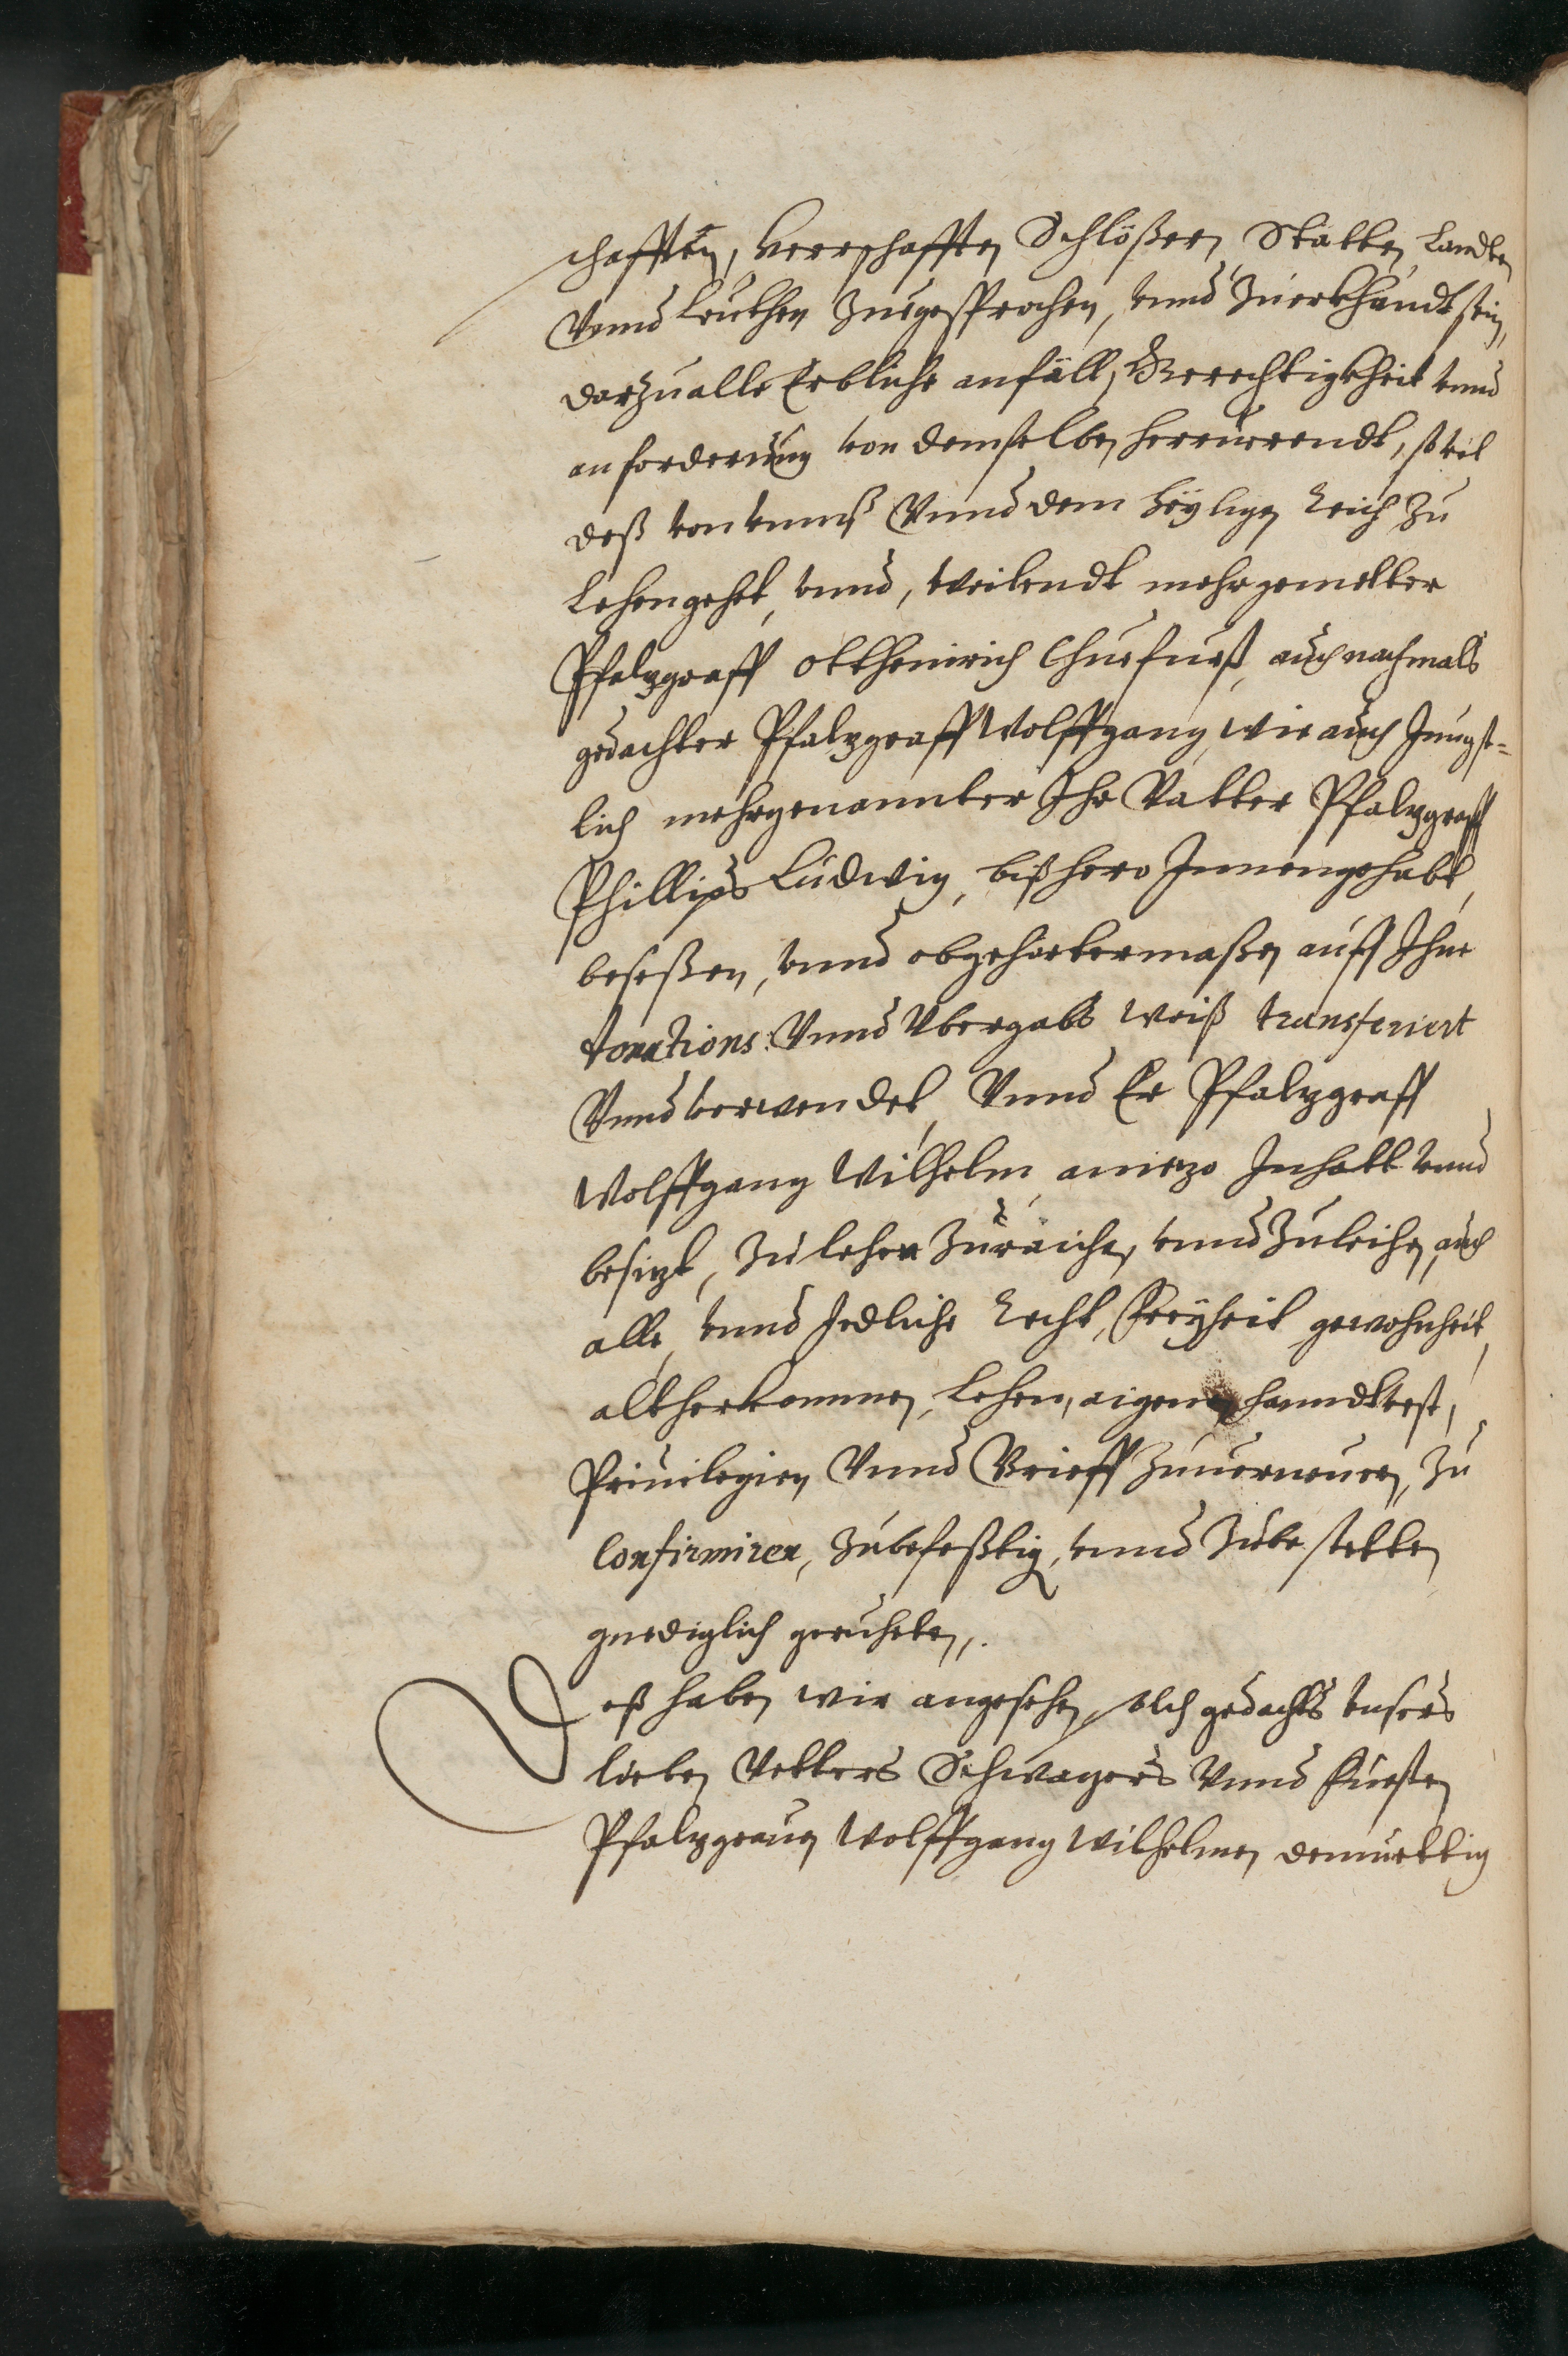 chafften, herrschafften Schlößer, Statten, Landten
Vnnd Leuthen Zuegesprochen, vnnd Zuerkhandt sein,
darzu alle Erbliche anfäll, Gerechtigkheit vnnd
anforderung von demselben herrürendt, so vil
deß von vnnß Vnnd dem heyligen Reich Zu
Lehen gehet, vnnd, Weilendt mehrgemelter
Pfalzgraff Ottheinrich Churfurst, auch nachmals
gedachter Pfalzgraff Wolffgang, wie auch Jungst-
lich mehrgenannter Ihr Vatter Pfalzgraff
Phillips Ludwig, bißhero Innengehabt,
beseßen, vnnd obgehörtermaßen auff Ihne
donations: Vnnd Vbergabs weiß transferiert
Vnnd verwendet, Vnnd Er Pfalzgraff
Wolffgang Wilhelm aniezo Inhatt vnnd
besizt, Zu lehen Zu raichen, vnnd Zuleihen, auch
alle, vnnd Jedliche Recht, Freyheit gewohnheit,
altherkommen, Lehen, aigen, handtvest,
Priuilegien Vnnd Brieff Zuuerneuern, Zu
Confirmiren, Zubefeßtig, vnnd Zubestetten
gnediglich geruheten.
Deß haben wir angesehen, solch gedachts vnsers
lieben Vetters Schwagers Vnnd Fürsten
Pfalzgrauen Wolffgang Wilhelmen demüettig